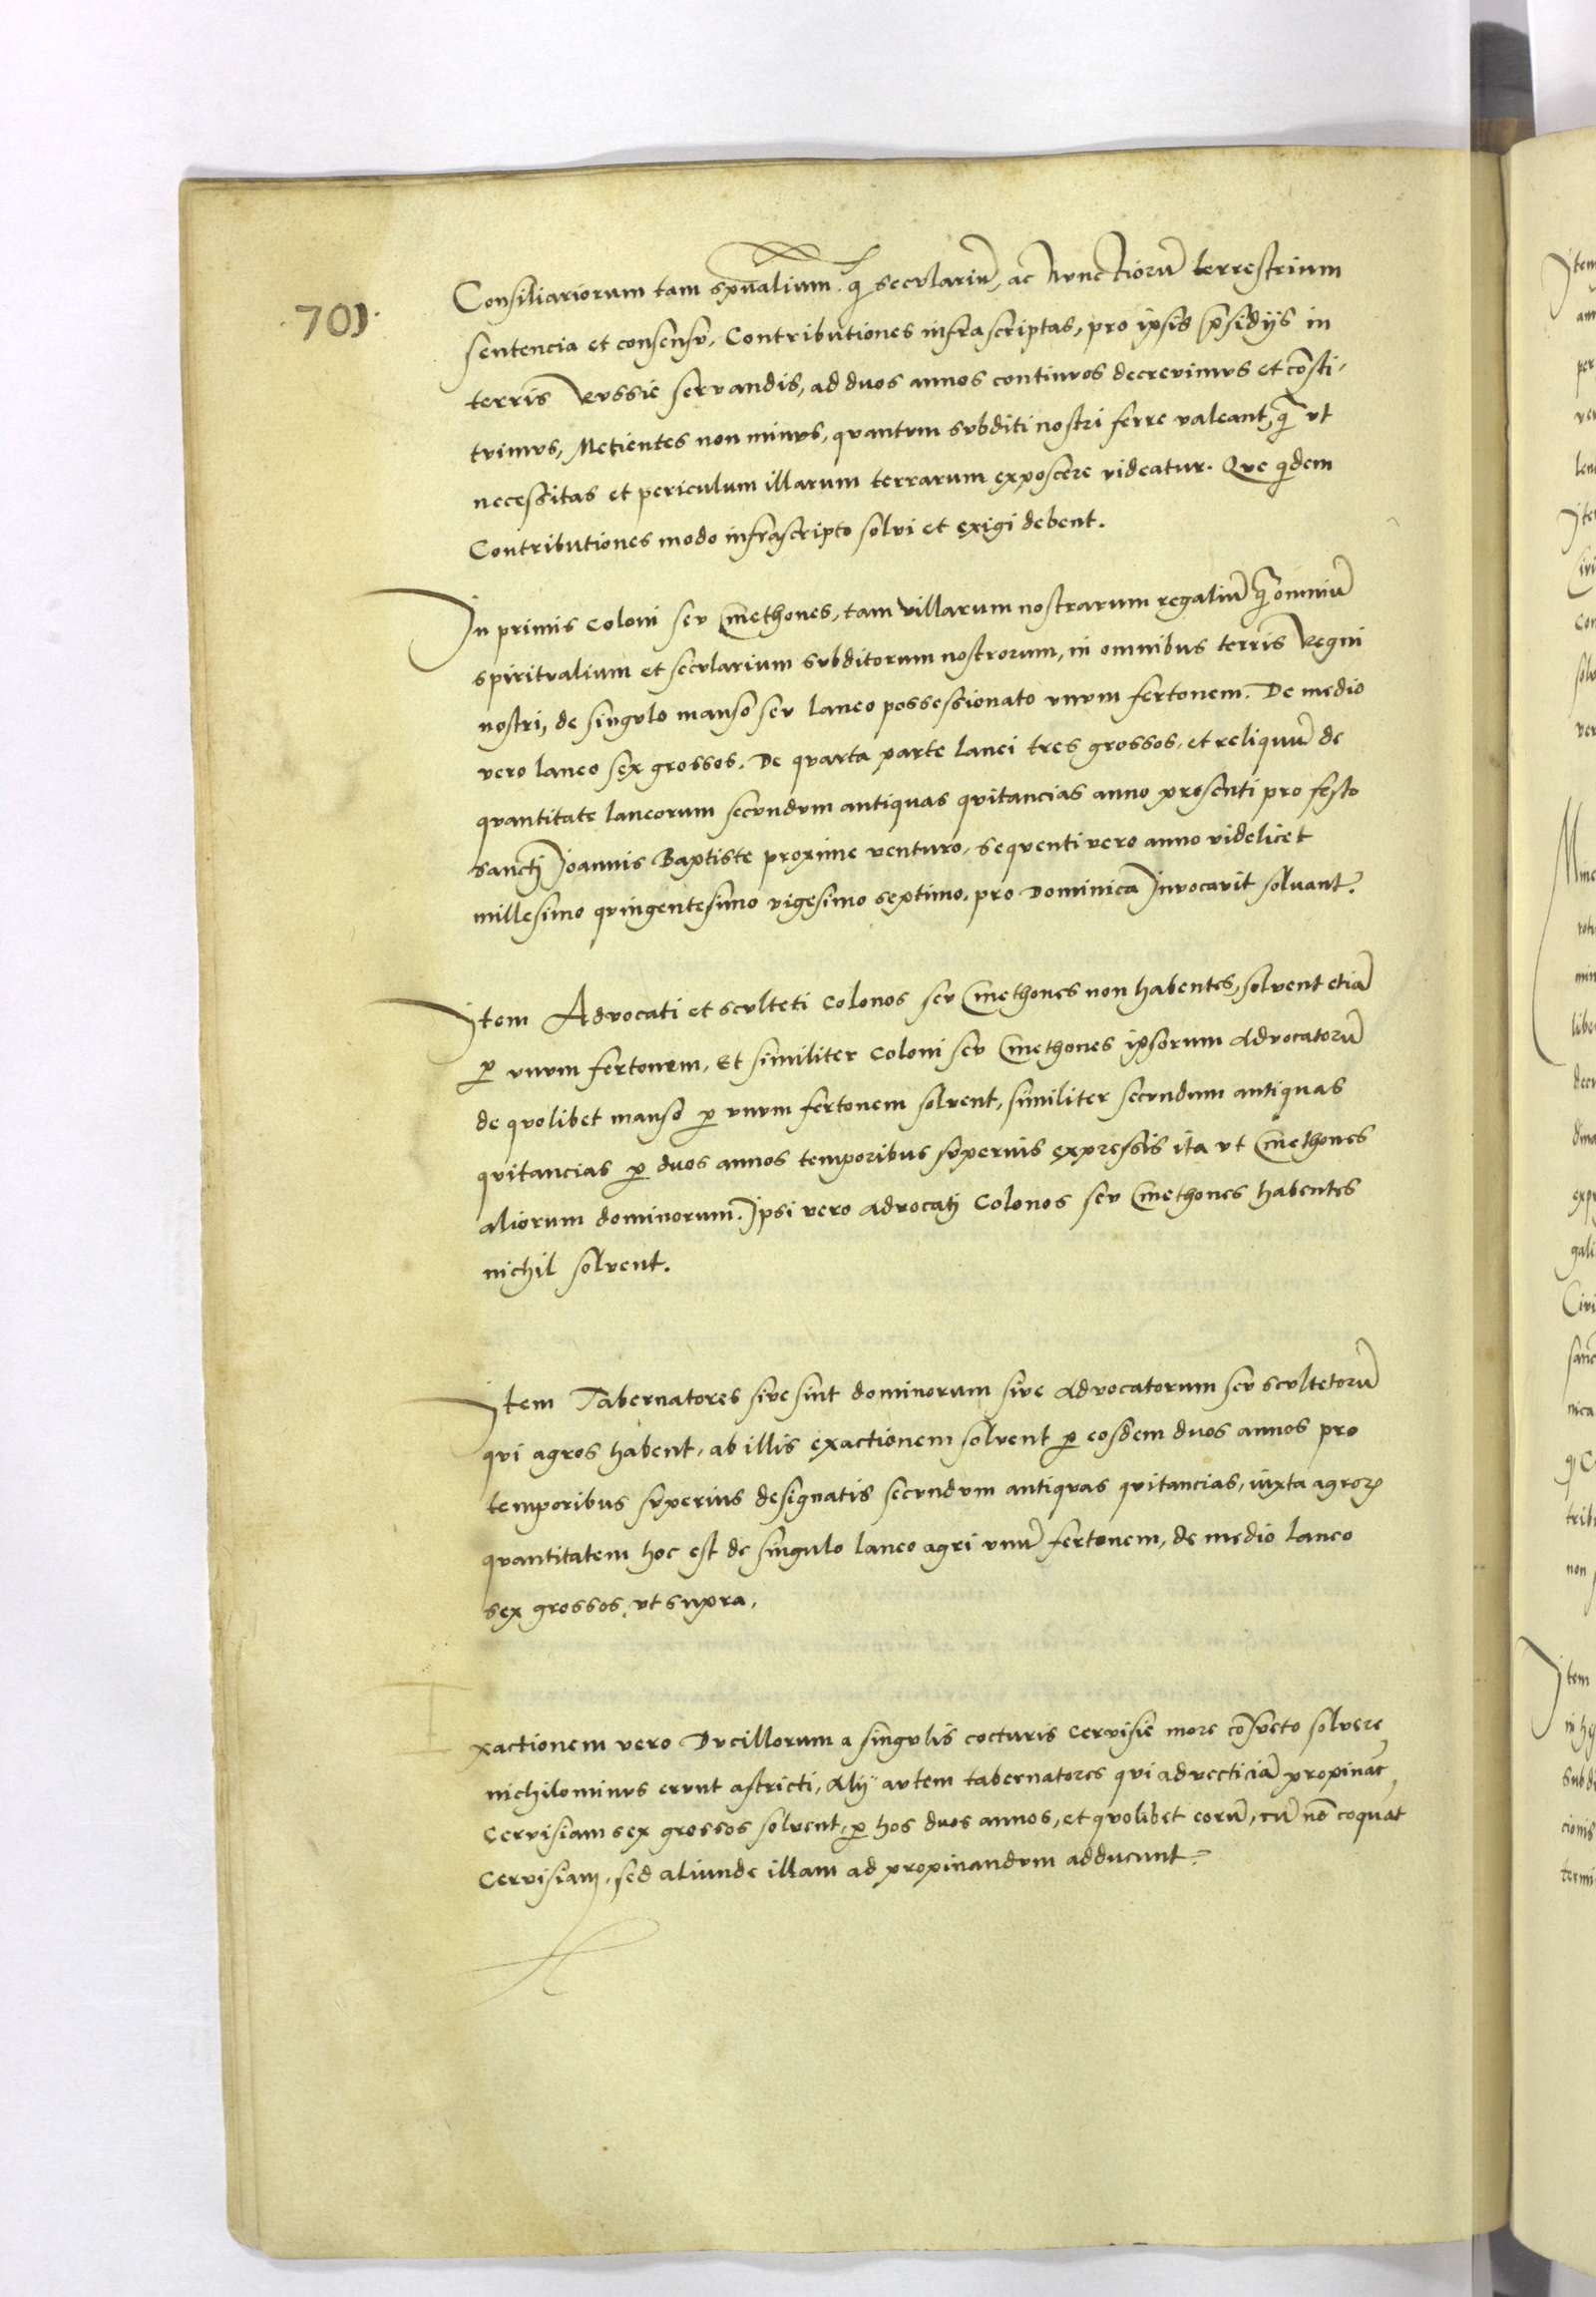 ·701·
Consiliariorum tam spūalium q̄ secvlariū, ac Nvnctiorū terrestrium
sentencia et consensv, Contribvtiones infrascriptas, pro ipsis p̄sidijs in
terris Rvssie servandis, ad dvos annos continvos decrevimvs et cōsti-
tvimvs, Metientes non minvs, qvantvm svbditi nostri ferre valeant, q̄ vt
necessitas et pericvlum illarum terrarum exposcere videatur. Qve q̄dem
Contribvtiones modo infrascripto solvi et exigi debent.
In primis Coloni sev Cmethones, tam villarum nostrarum regaliū q̄ omniū
spiritvalium et secvlarium svbditorum nostrorum, in omnibus terris Regni
nostri, de singvlo manso sev laneo possessionato vnvm fertonem. De medio
vero laneo sex grossos. De qvarta parte lanei tres grossos, et reliquū de
qvantitate laneorum secvndvm antiquas qvitancias anno presenti pro festo
sanctj Joannis Baptiste proxime ventvro, seqventi vero anno videlicet
millesimo qvingentesimo vigesimo septimo, pro Dominica Invocavit solvant.
Item Advocati et scvlteti Colonos sev Cmethones non habentes, solvent etiā
p̱ vnvm fertonem, Et similiter Coloni sev Cmethones ipsorum Advocatorū
de qvolibet manso p̱ vnvm fertonem solvent, similiter secvndum antiquas
qvitancias p̱ dvos annos temporibus svperius expressis ita vt Cmethones
aliorum dominorum. Ipsi vero Advocatj Colonos sev Cmethones habentes
nichil solvent.
Item Tabernatores sive sint dominorum sive Advocatorum sev scvltetorū
qvi agros habent, ab illis exactionem solvent p̱ eosdem dvos annos pro
temporibus svperius designatis secvndvm antiqvas qvitancias, iuxta agroꝝ
qvantitatem hoc est de singulo laneo agri vnū fertonem, de medio laneo
sex grossos, vt supra.
xactionem vero Dvcillorum a singvlis coctvris cervisie more cōsveto solvere
nichilominvs ervnt astricti, Alij avtem tabernatores qvi advecticiā propināt
Cervisiam sex grossos solvent, p̱ hos dvos annos, et qvolibet eorū, cū nō coquāt
Cervisiam, sed aliunde illam ad propinandvm adducunt.